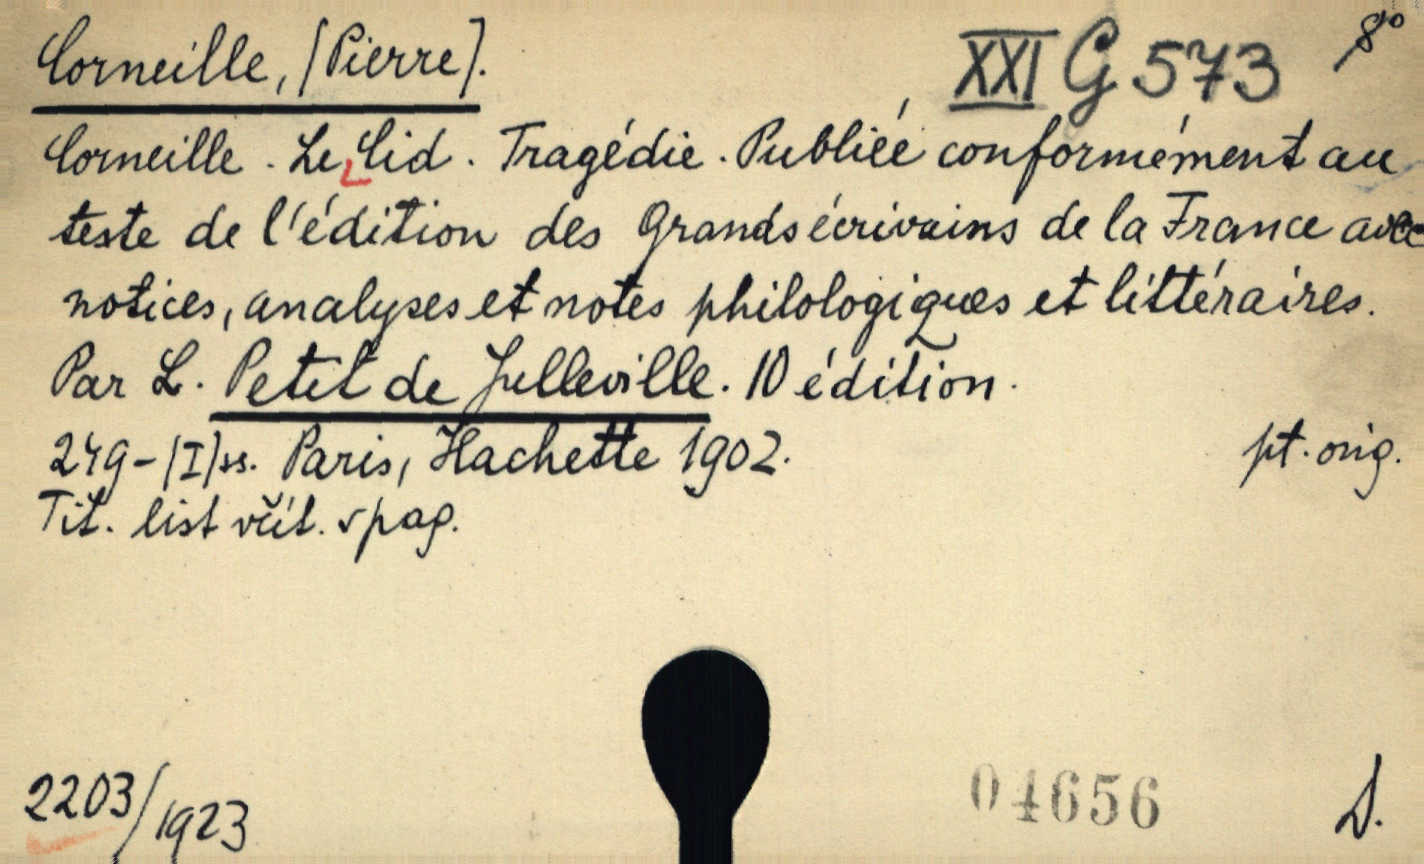 Corneille, [Pierre].
XXI G 573
8°
Corneille. Le Cid. Tragédie. Publiée conformément au
teste de l'édition des Grands écrivains de la France avec
notices, analyses et notes philologiques et littéraires.
Par L. Petit de Julleville. 10 édition.
249-[I]ss. Paris, Hachette 1902.
pt. orig.
Tit. list včít. v pag.
2203/1923
04656
D.